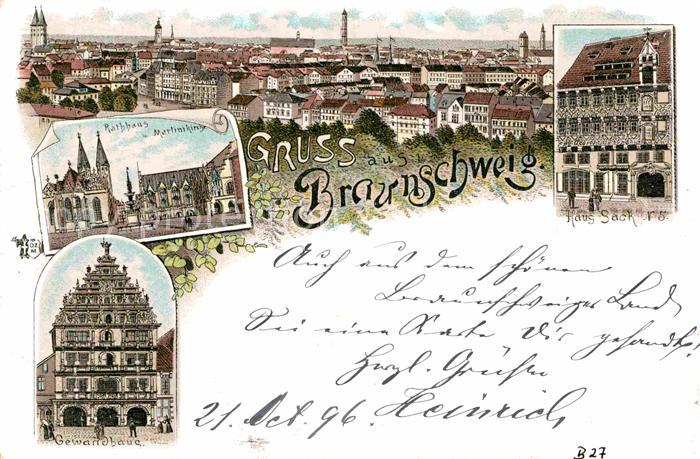 Rathhaus Martinikirche
GRUSS aus
Braunschweig.
Haus Sack № 5.
Gewandhaus.
Auch aus dem schönen
Braunschweiger Land
Sei eine Karte Dir gesandt!
Herzl. Grüße
21. Oct. 96. Heinrich
B 27